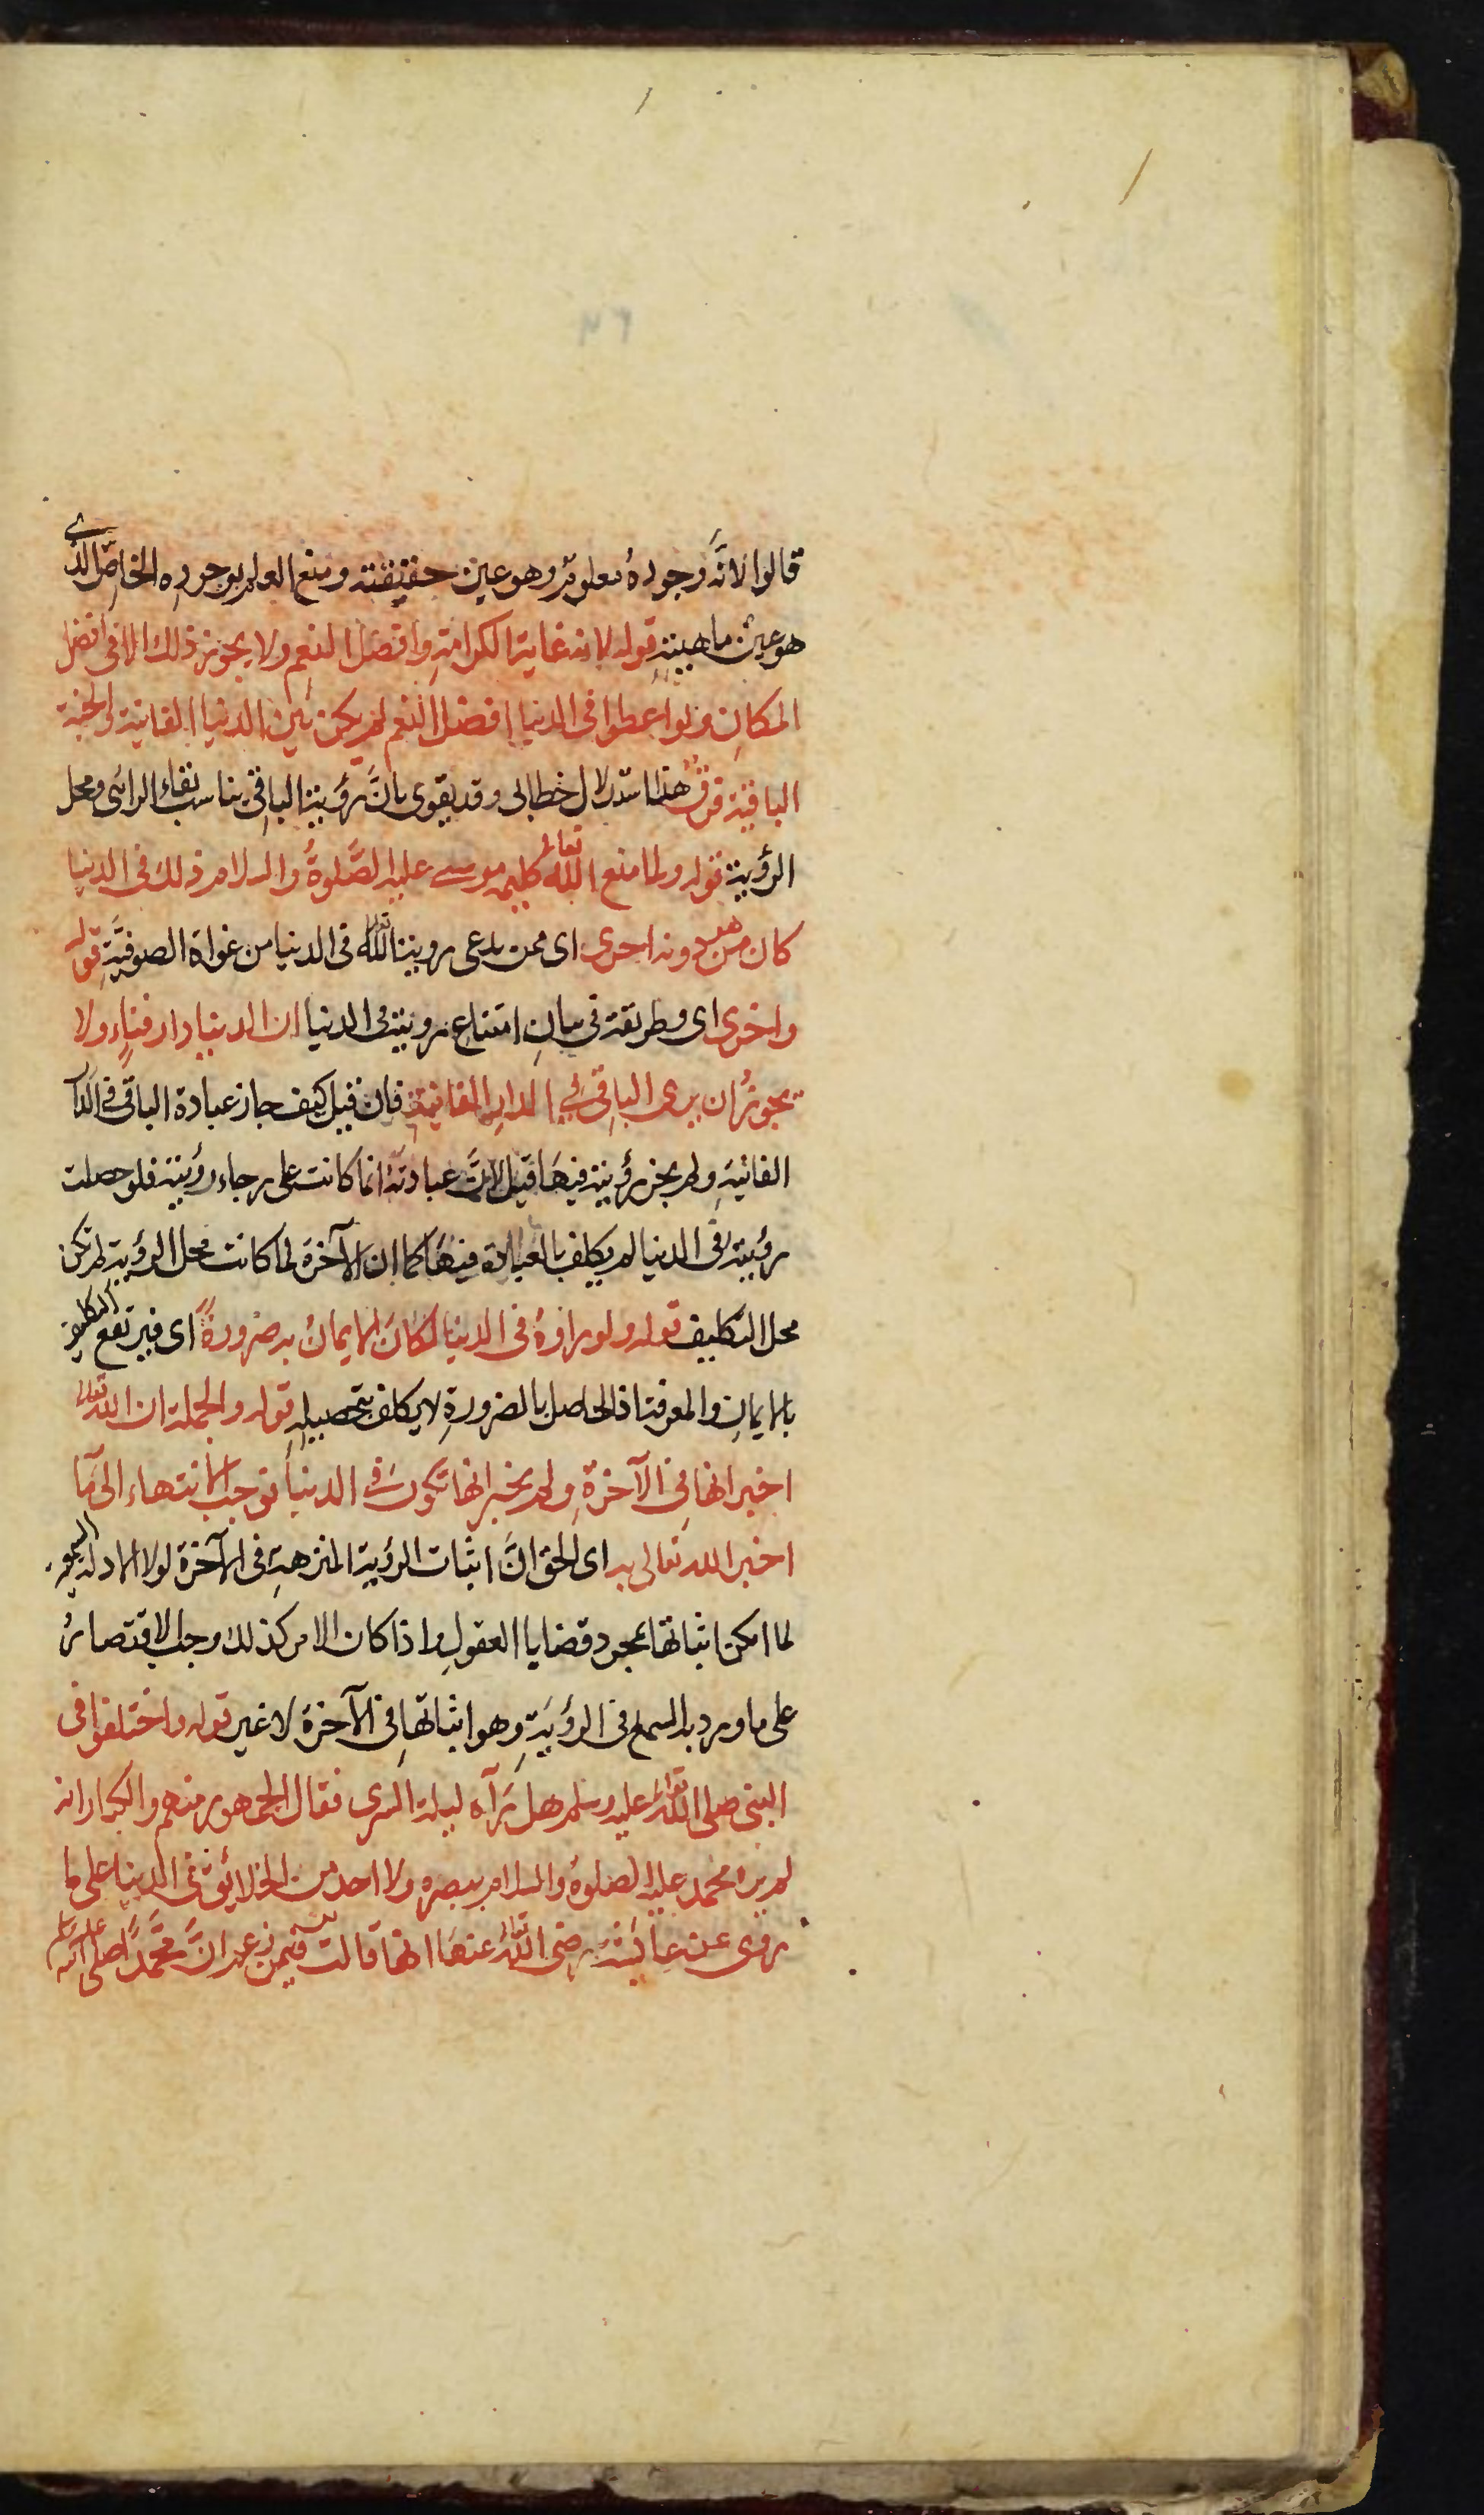 قالوا لانه وجوده معلوم وهو عين حقيقته ومنع العلم بوجوده الخاص الذى
هو عين ماهيته قوله لانه غاية الكرامة وافضل النعم ولا يجوز ذلك الا فى افضل
المكان ولو اعطوا فى الدنيا افضل النعم لم يكن بين الدنيا الفانية والجنة
الباقية فرق هذا استدلال خطابى وقد يقوى بانَّ رؤية الباقى يناسب بقاء الرائى ومحل
الرؤية قوله ولما منع الله تعالى كليمه موسى عليه الصَّلوةُ والسلام ذلك فى الدنيا
كان من هو دونه احرى اى ممن يدعى روية الله تعالى فى الدنيا من غواة الصوفيَّةِ قوله
واخرى اى وطريقة فى بيان امتناع رويته فى الدنيا ان الدنيا دار فناءٍ ولا
يجوزُ ان يرى الباقى فى الدار الفانية فان قيل كيف جاز عبادة الباقى فى الدا
الفانيةِ ولم يجز رؤيته فيهَا قيل لانَّ عبادتَهُ انما كانت على رجاء رؤيته فلو حصلت
رؤيته فى الدنيا لم يكلف بالعبادة فيهَا كما ان الآخرة لما كانت محل الرؤية لم تكن
محل التكليف قوله ولو راوهُ فى الدنيا لكانَ الايمانُ به ضرورةً اى فيرتفع التكليف
بالايمانِ والمعرفة اذ الحاصل بالضرورةِ لا يكلف بتحصيلهِ قوله والجملة ان الله تعالى
اخبر انها فِى الآخرةِ ولم يخبر انها تكون فى الدنيا فوجب الانتهاء الى ما
اخبر الله تعالى به اى الحق انَّ اثبات الرؤية المنزهةِ فى الآخرة لولا الادلة السمعية
لما امكن اثباتها بمجرد قضايا العقولِ واذا كان الامر كذلك وجب الاقتصارُ
على ما ورد به السمع فى الرؤيَةِ وهو اثباتها فى الآخرة لا غير قوله واختلفوا فى
النبى صلى الله تعالى عليه وسلم هل رَآه ليلة السرى فقال الجمهور منهم والكبار انه
لم يره محمد عليه الصلوة والسلام ببصره ولا احد من الخلائق فى الدنيا على ما
روى عن عائشة رضى الله تعالى عنهَا انها قالت فيمن زعم انَّ محمَّدًا صلى الله عليه وسلم